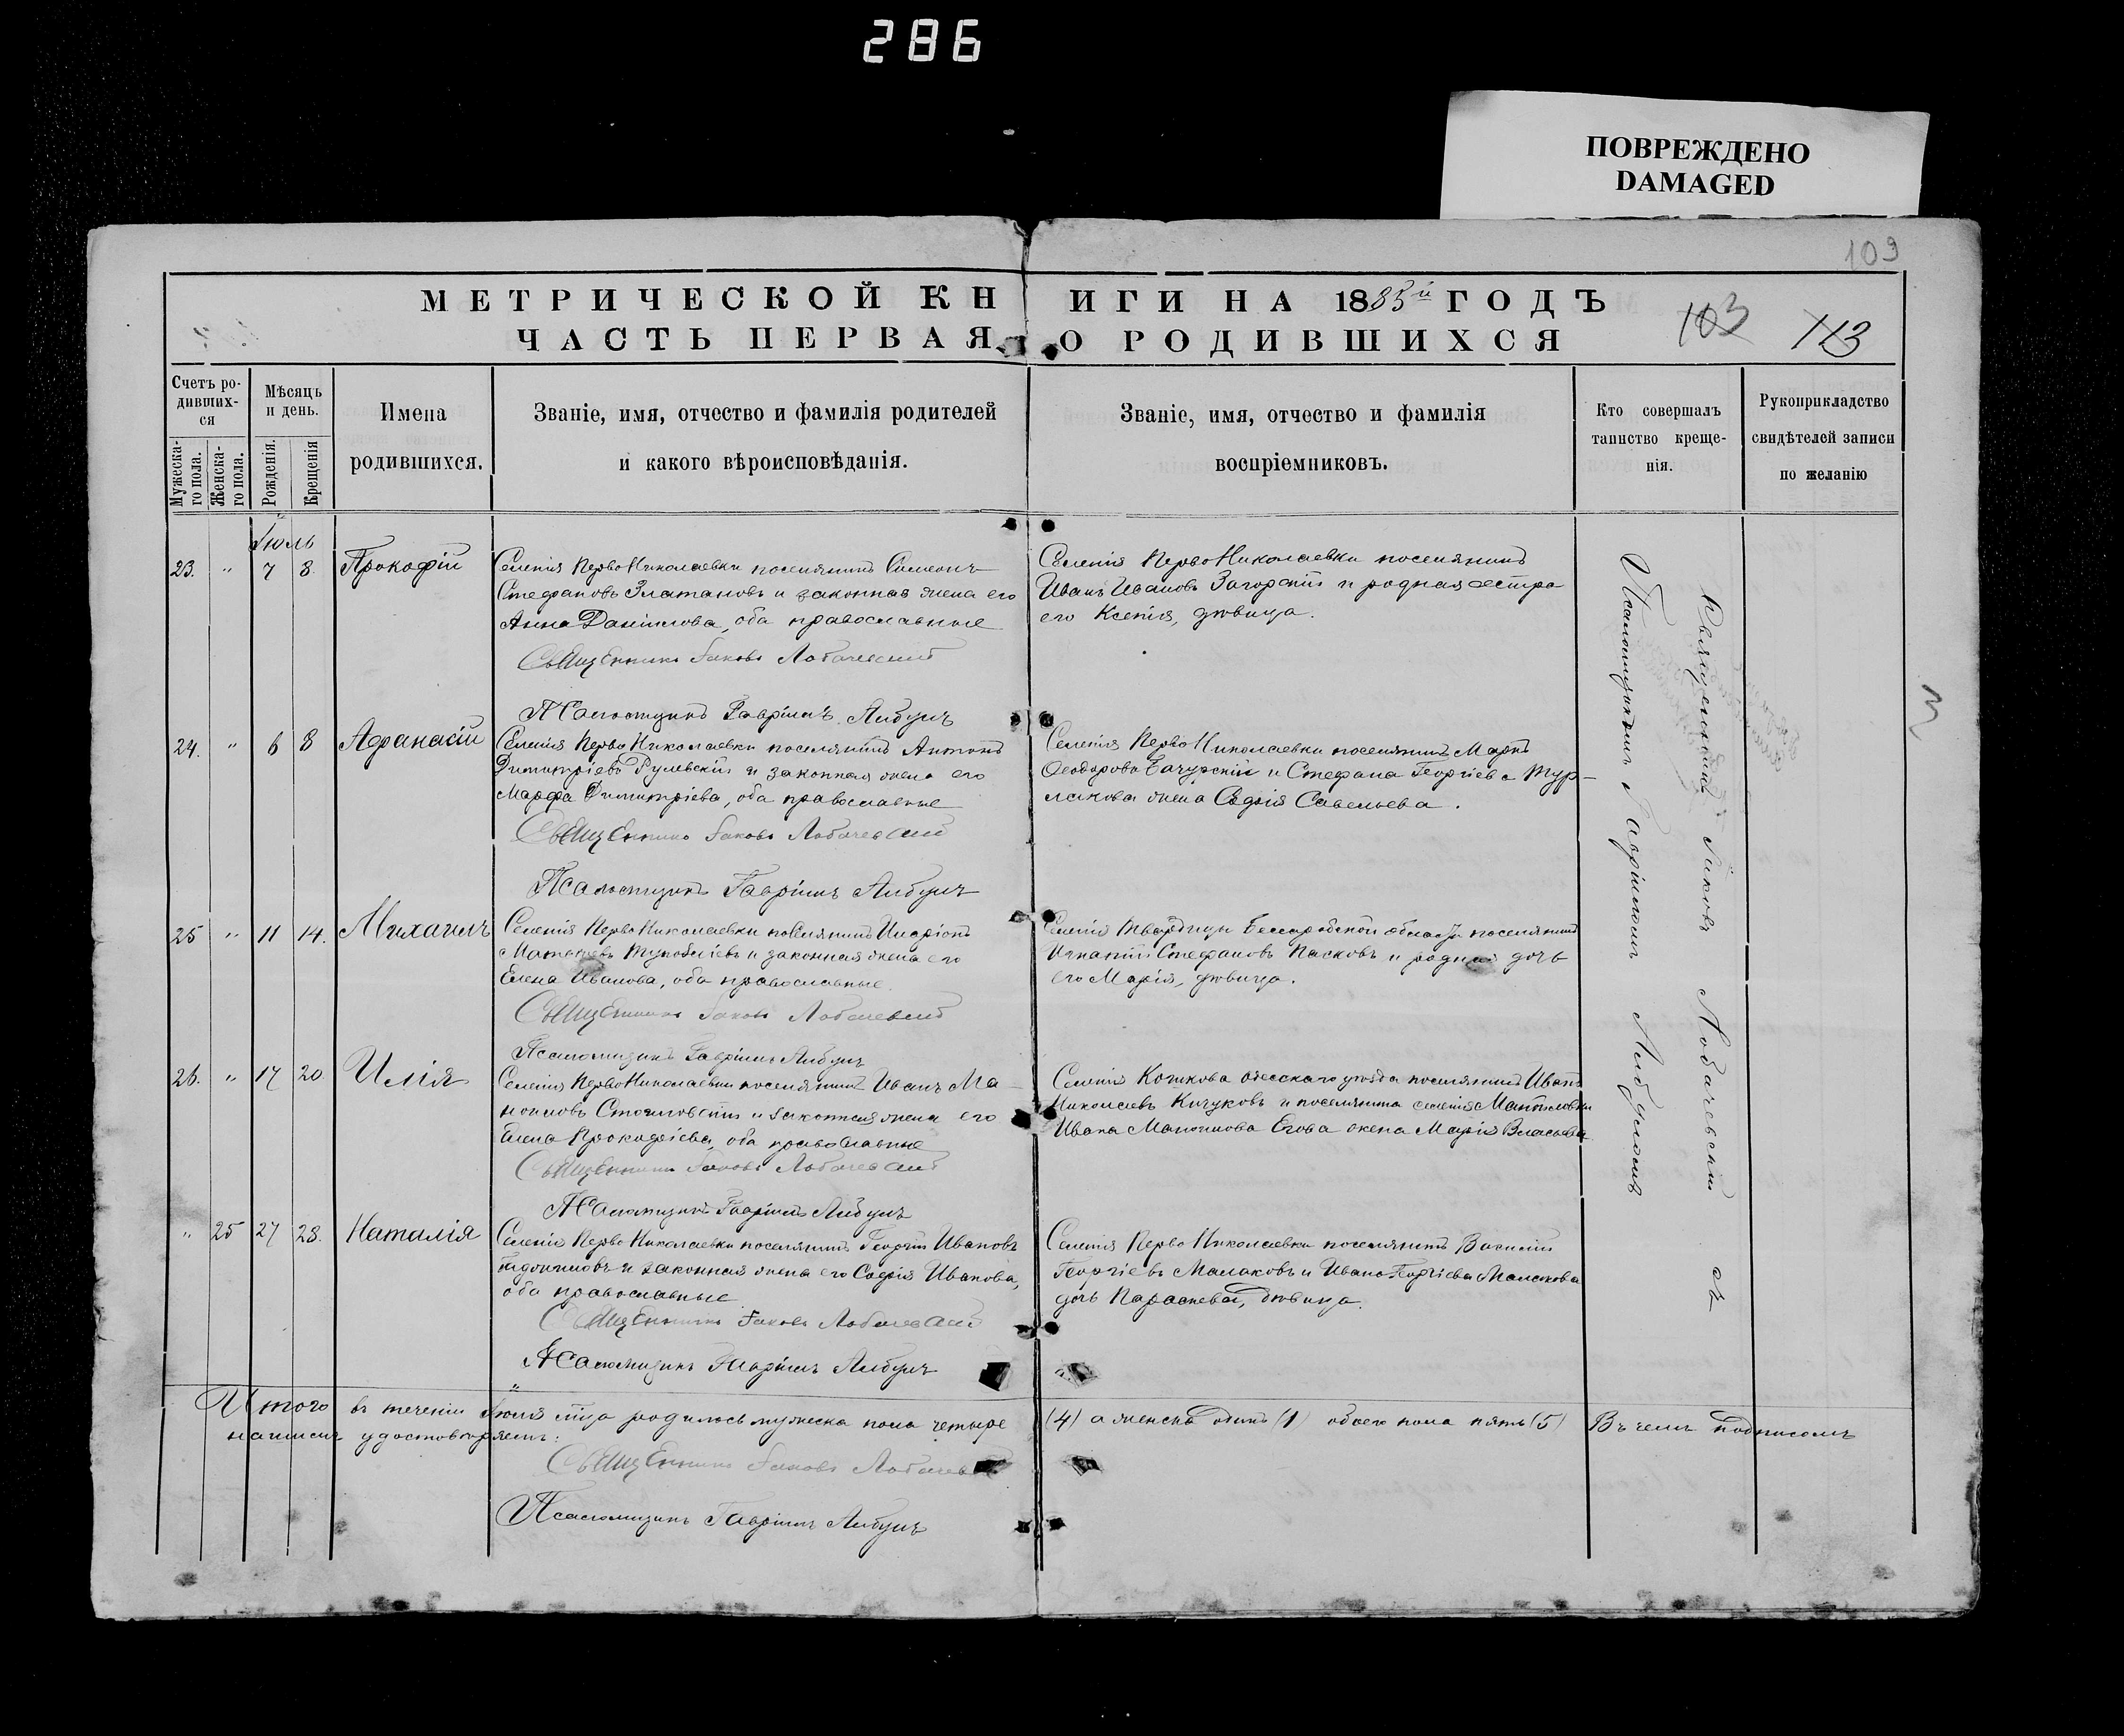 286
ПОВРЕЖДЕНО
DAMAGED
109
МЕТРИЧЕСКОЙ КНИГИ НА 1885й ГОДЪ
ЧАСТЬ ПЕРВАЯ О РОДИВШИХСЯ
103 113
Счетъ родившихся
Мужеска-го пола.
Женска-го пола.
Мѣсяцъ и день.
Рожденія.
Крещенія
Имена
родившихся.
Званіе, имя, отчество и фамилія родителей
и какого вѣроисповѣданія.
Званіе, имя, отчество и фамилія
воспріемниковъ.
Кто совершалъ
таинство креще-
нія.
Рукоприкладство
свидѣтелей записи
по желанію
Іюль
23. " 7 8. Прокофій
Селенія ПервоНиколаевки поселянинъ Симеонъ
Стефановъ Златановъ и законная жена его
Анна Данилова, оба православные
Священникъ Іаковъ Лобачевскій
Псаломщикъ Гавріилъ Либулъ
Селенія ПервоНиколаевки поселянинъ
Иванъ Ивановъ Загорскій и родная сестра
его Ксенія, дѣвица.
24. " 6 8 Афанасій
Селенія ПервоНиколаевки поселянинъ Антонъ
Димитріевъ Гулевскій и законная жена его
Марфа Димитріева, оба православные
Священникъ Іаковъ Лобачевскій
Псаломщикъ Гавріилъ Либулъ
Селенія ПервоНиколаевки поселянинъ Маркъ
Ѳеодоровъ Бачурскій и Стефана Георгіева Тур-
лакова жена Софія Савельева.
25 " 11 14. Михаилъ
Селенія ПервоНиколаевки поселянинъ Иларіонъ
и законная жена его
Елена Иванова, оба православные.
Священникъ Іаковъ Лобачевскій
Псаломщикъ Гавріилъ Либулъ
Селенія Твардицы Бессарабской области поселянинъ
Игнатій Стефановъ Пасковъ и родная дочь
его Марія, дѣвица.
26. " 17 20. Илія
Селенія ПервоНиколаевки поселянинъ Иванъ Ма-
ноиловъ Стоиловскій и законная жена его
Елена Прокофіева, оба православные
Священникъ Іаковъ Лобачевскій
Псаломщикъ Гавріилъ Либулъ
Селенія Кошкова одесскаго уѣзда поселянинъ Иванъ
Николаевъ Кичуковъ и поселянина селенія
Ивана Манойлова Егова жена Марія Власьева
" 25 27 28. Наталія
Селенія ПервоНиколаевки поселянинъ Георгій Ивановъ
и законная жена его Софія Иванова,
оба православные
Священникъ Іаковъ Лобачевскій
Псаломщикъ Гавріилъ Либулъ
Селенія ПервоНиколаевки поселянинъ Василій
Георгіевъ Малаковъ и Ивана Георгіева Малакова
дочь Параскева, дѣвица.
Священникъ Іаковъ Лобачевскій съ
Псаломщикомъ Гавріиломъ Либуломъ
Итого въ теченіи Іюля мца родилось мужеска пола четыре (4) а женска одинъ (1) обоего пола пять (5) Въ чемъ подписомъ
нашимъ удостовѣряемъ:
Священникъ Іаковъ Лобачевскій
Псаломщикъ Гавріилъ Либулъ